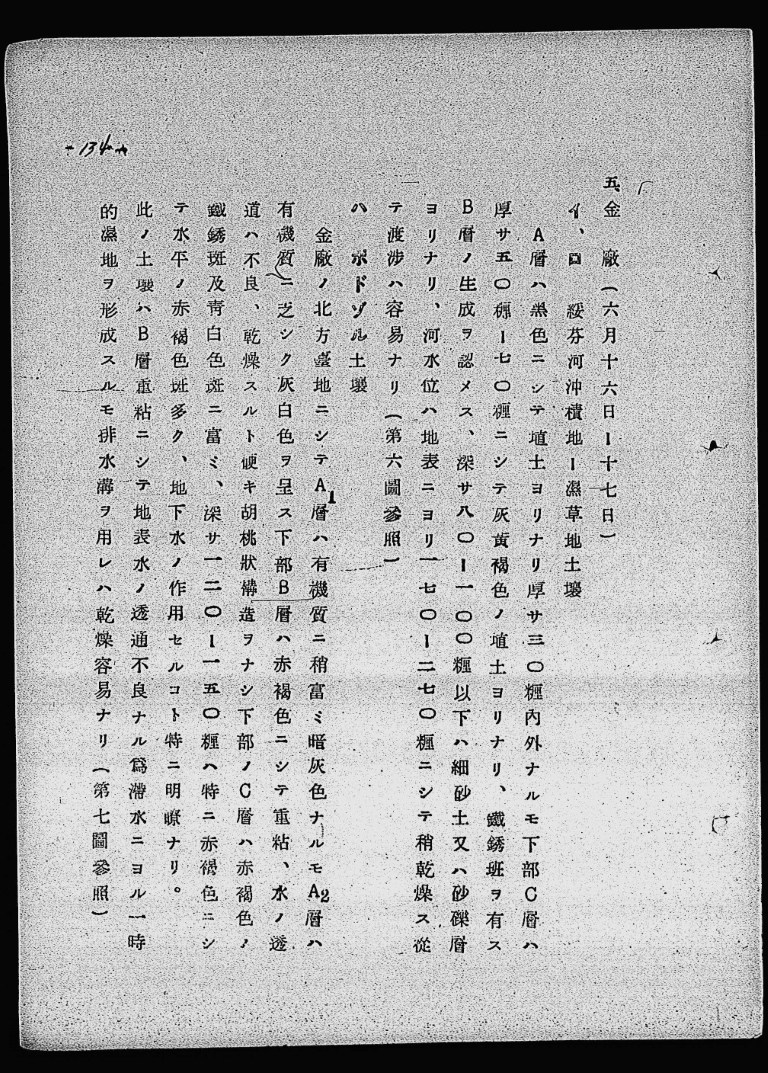 -134-
五、金 廠(六月十六日ー十七日)
イ、ロ 綏芬河沖積地ー濕草地土壤
A層ハ黑色ニシテ埴土ヨリナリ厚サ三〇糎內外ナルモ下部C層ハ
厚サ五〇糎ー七〇糎ニシテ灰黄褐色ノ埴土ヨリナリ、鐵銹斑ヲ有ス
B層ノ生成ヲ認メス、深サ八〇ー一〇〇糎以下ハ細砂土又ハ砂礫層
ヨリナリ、河水位ハ地表ニヨリ一七〇ー二七〇糎ニシテ稍乾燥ス從
テ渡涉ハ容易ナリ(第六圖參照)
ハ ポドゾル土壤
金廠ノ北方臺地ニシテA1層ハ有機質ニ稍富ミ暗灰色ナルモA2層ハ
有機質ニ乏シク灰白色ヲ呈ス下部B層ハ赤褐色ニシテ重粘、水ノ透
道ハ不良、乾燥スルト硬キ胡桃狀構造ヲナシ下部ノC層ハ赤褐色ノ
鐵銹斑及靑白色斑ニ富ミ、深サ一二〇ー一五〇糎ハ特ニ赤褐色ニシ
テ水平ノ赤褐色斑多ク、地下水ノ作用セルコト特ニ明瞭ナリ。
此ノ土壤ハB層重粘ニシテ地表水ノ透通不良ナル爲滯水ニヨル一時
的濕地ヲ形成スルモ排水溝ヲ用レハ乾燥容易ナリ(第七圖參照)